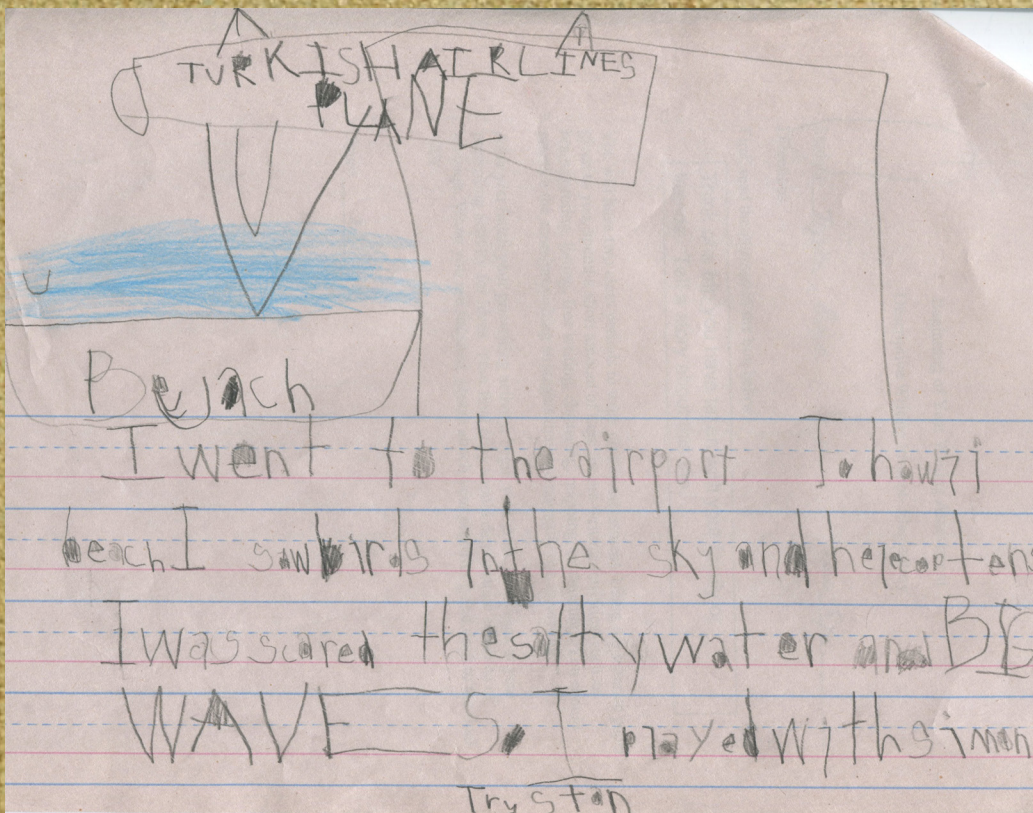 TURKISH AIRLINES
PLANE
Beach
I went to the airport Johawzi
beach I saw birds in the sky and helecopters
I was scared the salty water and BIG
WAVE S. I played with simon
Trystan